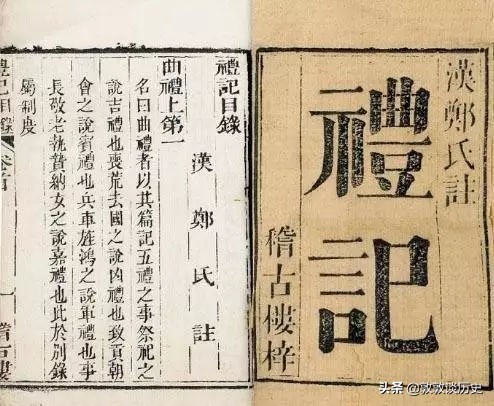 漢鄭氏註
禮記
稽古樓梓
禮記目錄
漢鄭氏註
曲禮上第一
名曰曲禮者以其篇記五禮之事祭祀之
說吉禮也喪荒去國之說凶禮也致貢朝
會之說賓禮也兵車旌鴻之說軍禮也事
長敬老執贄納女之說嘉禮也此於別錄
屬制度
禮記目錄
一
稽古樓
头条 @敦敦谈历史